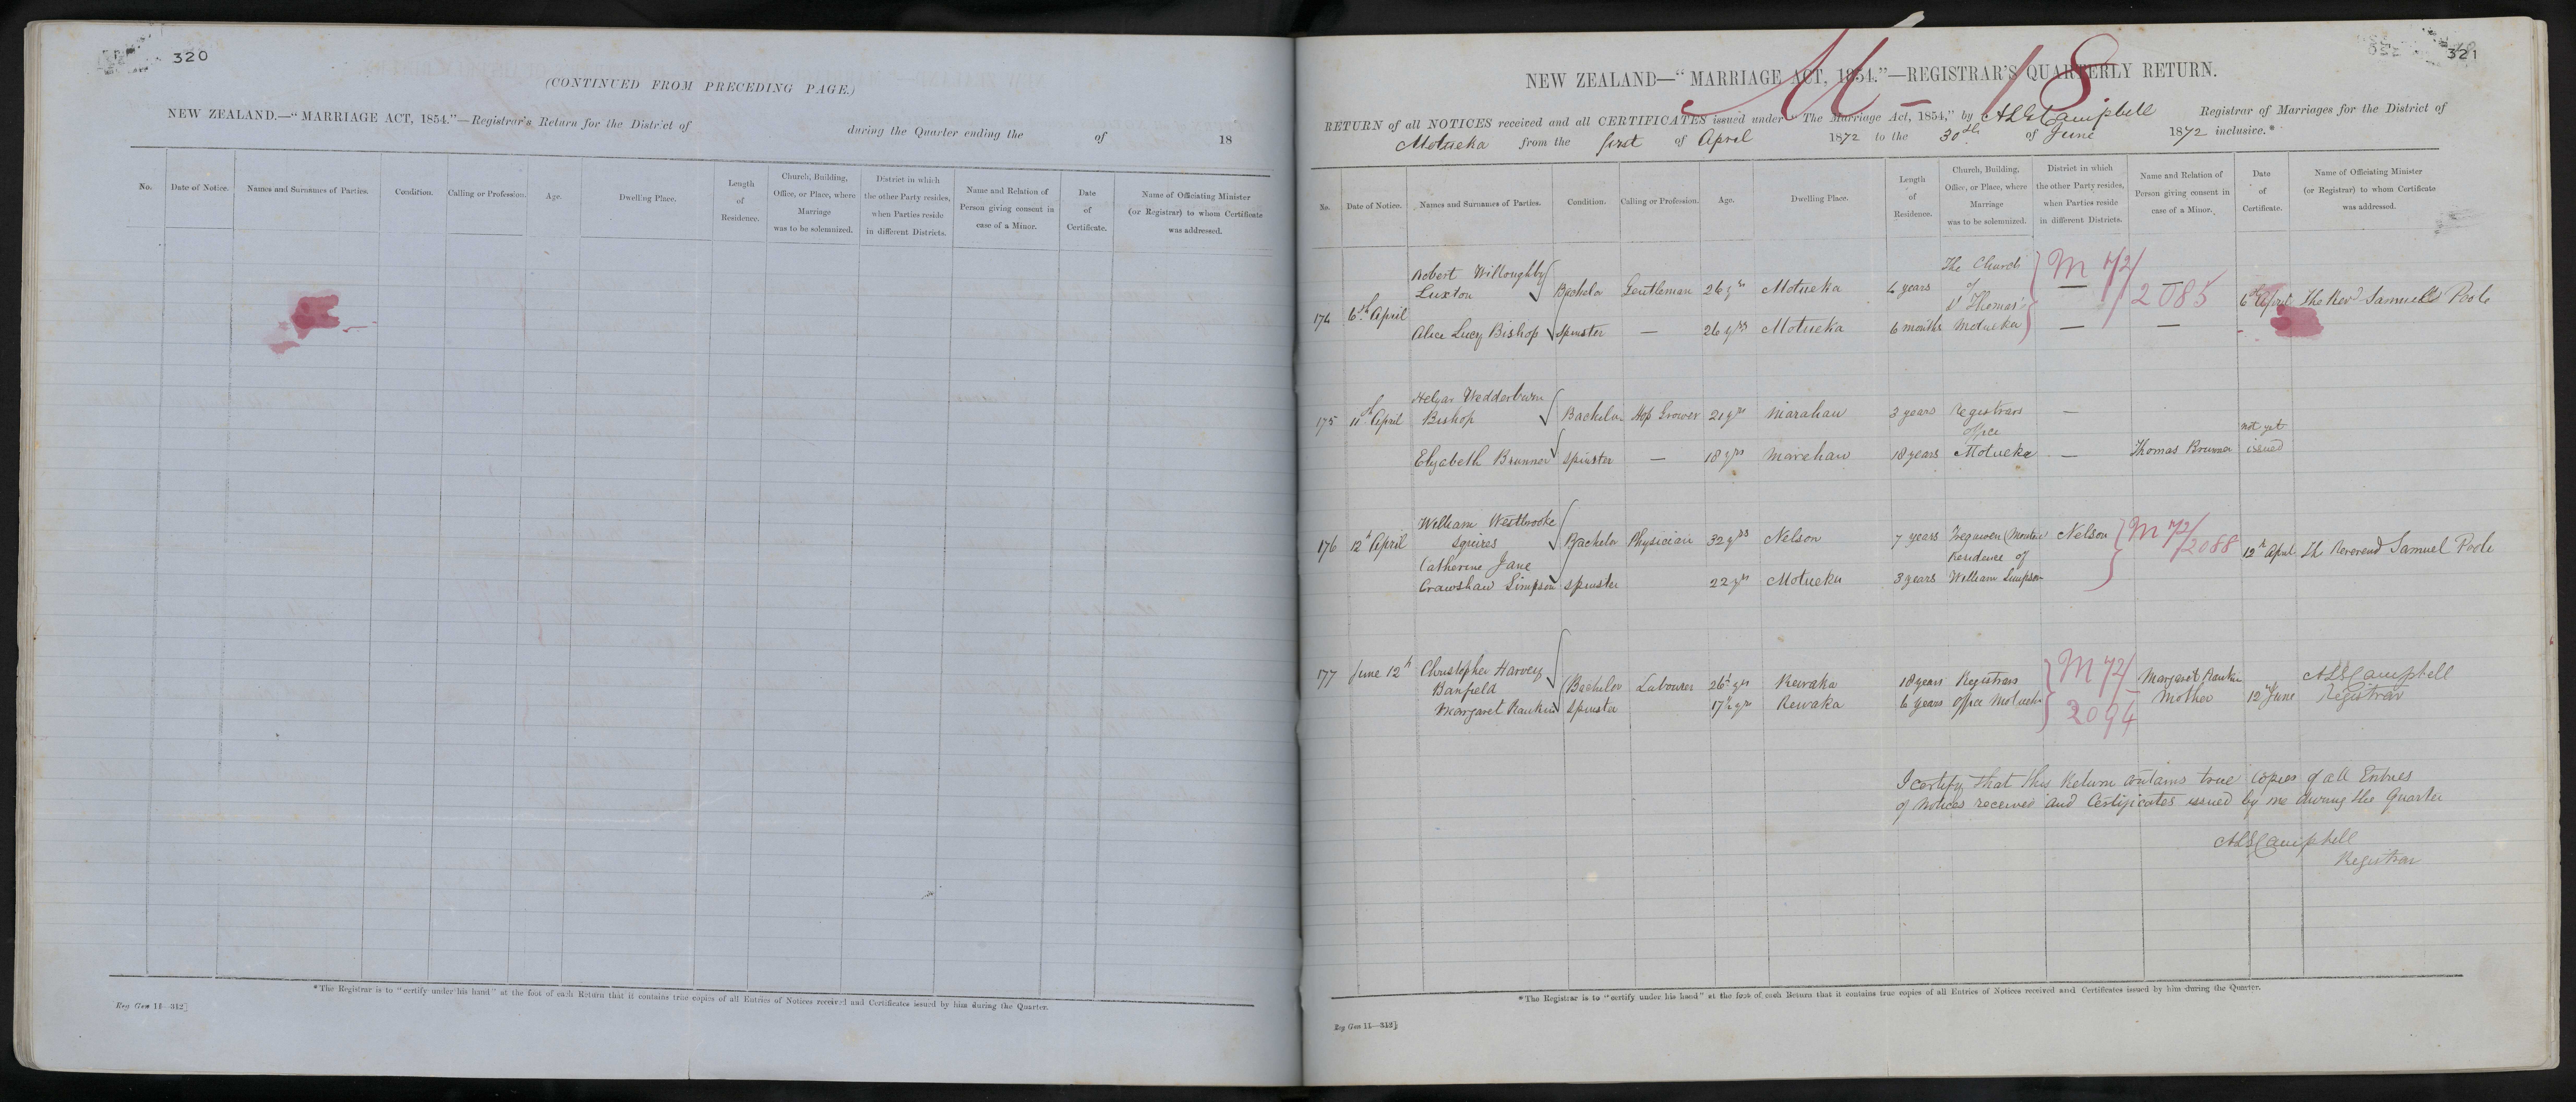 320
(CONTINUED FROM PRECEDING PAGE.)
NEW ZEALAND.—"MARRIAGE ACT, 1854."—Registrar's Return for the District of during the Quarter ending the of 18
No. Date of Notice. Names and Surnames of Parties. Condition. Calling or Profession. Age. Dwelling Place. Length of Residence. Church, Building, Office, or Place, where Marriage was to be solemnized. District in which the other Party resides, when Parties reside in different Districts. Name and Relation of Person giving consent in case of a Minor. Date of Certificate. Name of Officiating Minister (or Registrar) to whom Certificate was addressed.
*The Registrar is to "certify under his hand" at the foot of each Return that it contains true copies of all Entries of Notices received and Certificates issued by him during the Quarter.
Reg Gen 11—312]
321
M - 18
NEW ZEALAND—"MARRIAGE ACT, 1854."—REGISTRAR'S QUARTERLY RETURN.
RETURN of all NOTICES received and all CERTIFICATES issued under "The Marriage Act, 1854," by Campbell Registrar of Marriages for the District of
Motueka from the first of April 1872 to the 30th of June 1872 inclusive.*
No. Date of Notice. Names and Surnames of Parties. Condition. Calling or Profession. Age. Dwelling Place. Length of Residence. Church, Building, Office, or Place, where Marriage was to be solemnized. District in which the other Party resides, when Parties reside in different Districts. Name and Relation of Person giving consent in case of a Minor. Date of Certificate. Name of Officiating Minister (or Registrar) to whom Certificate was addressed.
Robert Willoughby The Church M 72/
174 6th April Luxton Bachelor Gentleman 26 yrs Motueka years of — 2085 — 6th April The Revd Samuel Poole
St Thomas'
Alice Lucy Bishop Spinster — 26 yrs Motueka 6 months Motueka — —
Helyar Wedderburn
175 11th April Bishop Bachelor Hop Grower 21 yrs Marahau 3 years Registrars —
office not yet
Elizabeth Brunner Spinster — 18 yrs Marahau 18 years Motueka — Thomas Brunner issued
William Westbrooke
176 12th April Squires Bachelor Physician 32 yrs Nelson 7 years Nelson M 72/2088 12th April The Reverend Samuel Poole
Catherine Jane Residence of
Crawshaw Simpson Spinster 22 yrs Motueka 3 years William Simpson
177 June 12th Christopher Harvey M 72/ Campbell
Banfield Bachelor Labourer 26 yrs Rewaka 18 years Registrars Margaret Rankin Registrar
Margaret Rankin Spinster 17 yrs Rewaka 6 years Office Motueka 2094 Mother 12th June
I certify that this Return contains true copies of all Entries
of Notices received and Certificates issued by me during the Quarter
Campbell
Registrar
*The Registrar is to "certify under his hand" at the foot of each Return that it contains true copies of all Entries of Notices received and Certificates issued by him during the Quarter.
Reg Gen 11—312]